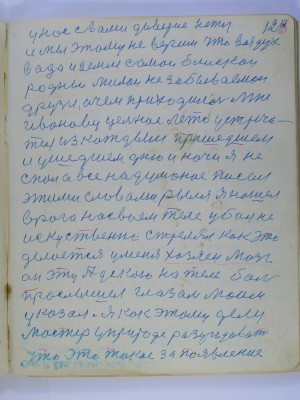 128
у нас с вами доверие нету
и мы этому не верим что воздух
вода и земля самой близкой
родны милой не забываемой
друзи, о чем приходилос мне
Иванову целное лето устреч
ти из каждым пришедшем
и ушедшем дню и ночи я не
спол а все надумоное писал
этими словами рылся я нашел
врага на своем теле убил не
искуственно стрелял как это
делается у меня хозяен мозг
он эту Адского на теле бал
прослышел глазам моем
указал. Я как этому делу
мастер у природе разгадоват
что это такое за появление